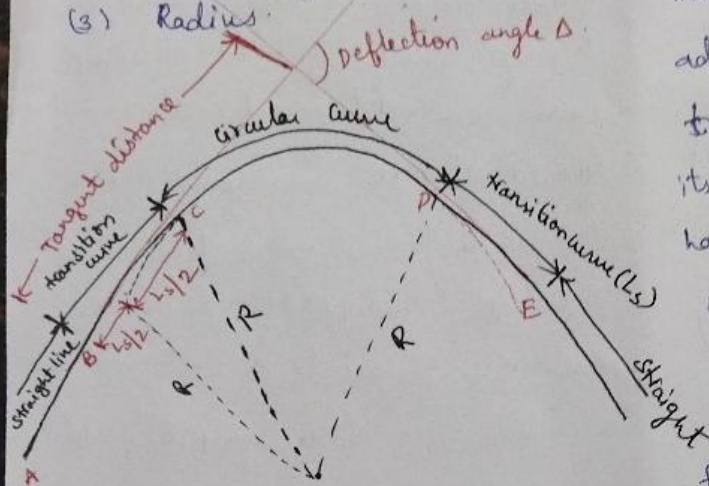 (3) Radius.
Deflection angle Δ.
Tangent distance
circular curve
transition
curve
transition curve (Ls)
straight line
straight
A
B
C
D
E
Ls/2
Ls/2
R
R
R
ad
its